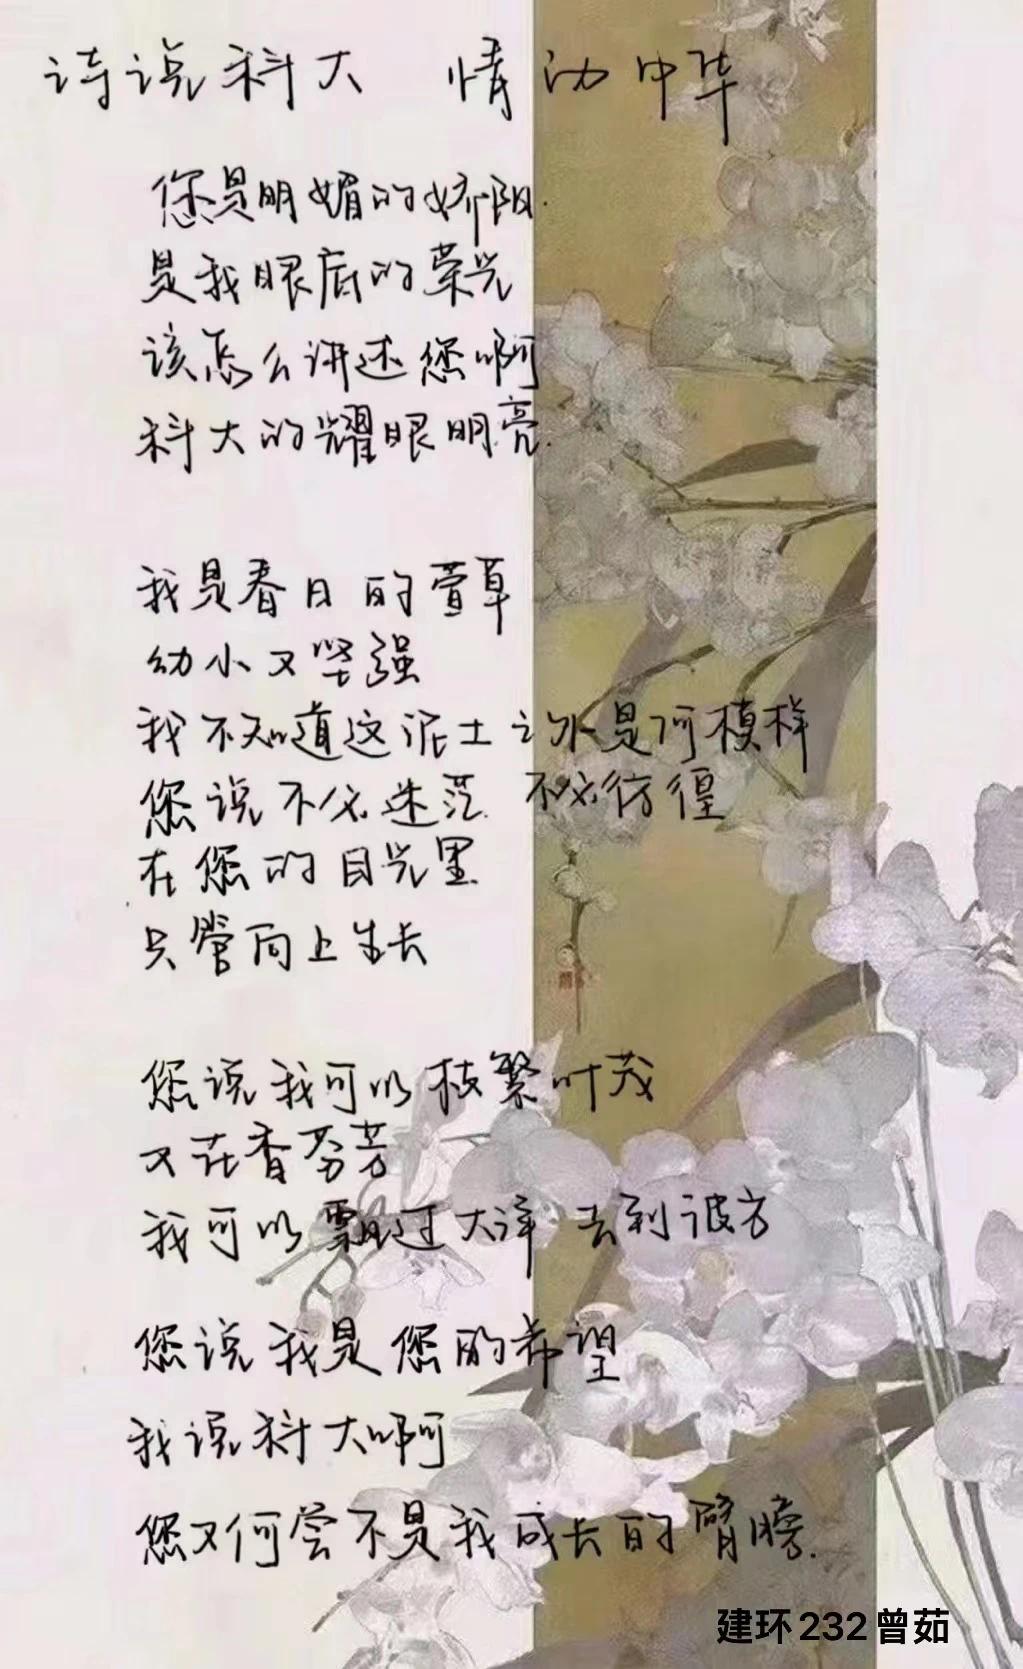 诗说科大 情动中华
您是明媚的娇阳.
是我眼底的荣光
该怎么讲述您啊
科大的耀眼明亮.
我是春日的萱草
幼小又坚强
我不知道这泥土之外是何模样
您说不必迷茫 不必彷徨
在您的目光里
只管向上生长
您说我可以枝繁叶茂
又花香芬芳
我可以飘过大洋 去到彼方
您说我是您的希望
我说科大啊
您又何尝不是我成长的臂膀.
建环232曾茹